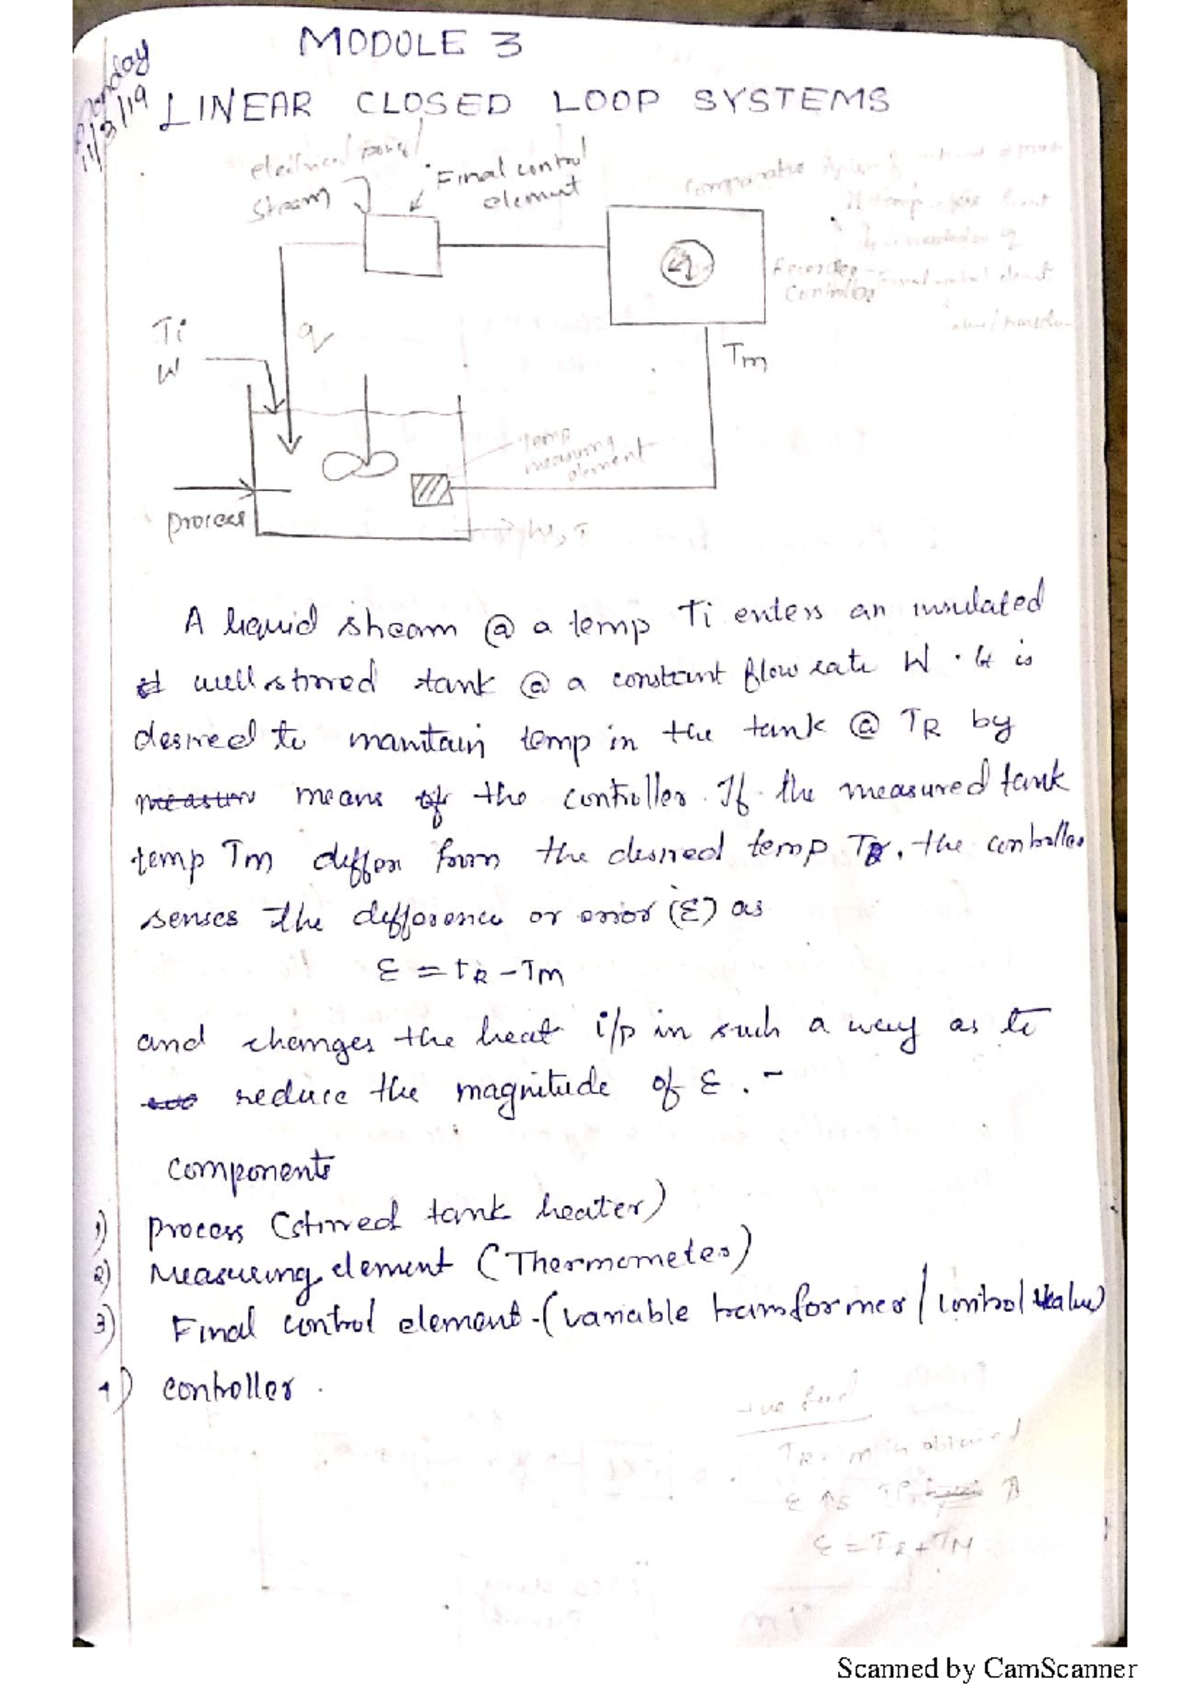 MODULE 3
Monday
11/3/19
LINEAR CLOSED LOOP SYSTEMS
electrical power/
steam
Final control
element
Comparator
Recorder-
Controller
Final control element
Ti
W
q
Tm
Temp
measuring
element
process
W, T
A liquid stream @ a temp Ti enters an insulated
well stirred tank @ a constant flow rate W. It is
desired to maintain temp in the tank @ TR by
means of the controller. If the measured tank
temp Tm differs from the desired temp TR, the controller
senses the difference or error (ε) as
ε = tR - Tm
and changes the heat i/p in such a way as to
reduce the magnitude of ε. -
components
1) process (stirred tank heater)
2) Measuring element (Thermometer)
3) Final control element - (variable transformer / control valve)
4) controller.
-ve feed
TR
is obtained
ε
ε = TR + TM
Tm
Scanned by CamScanner